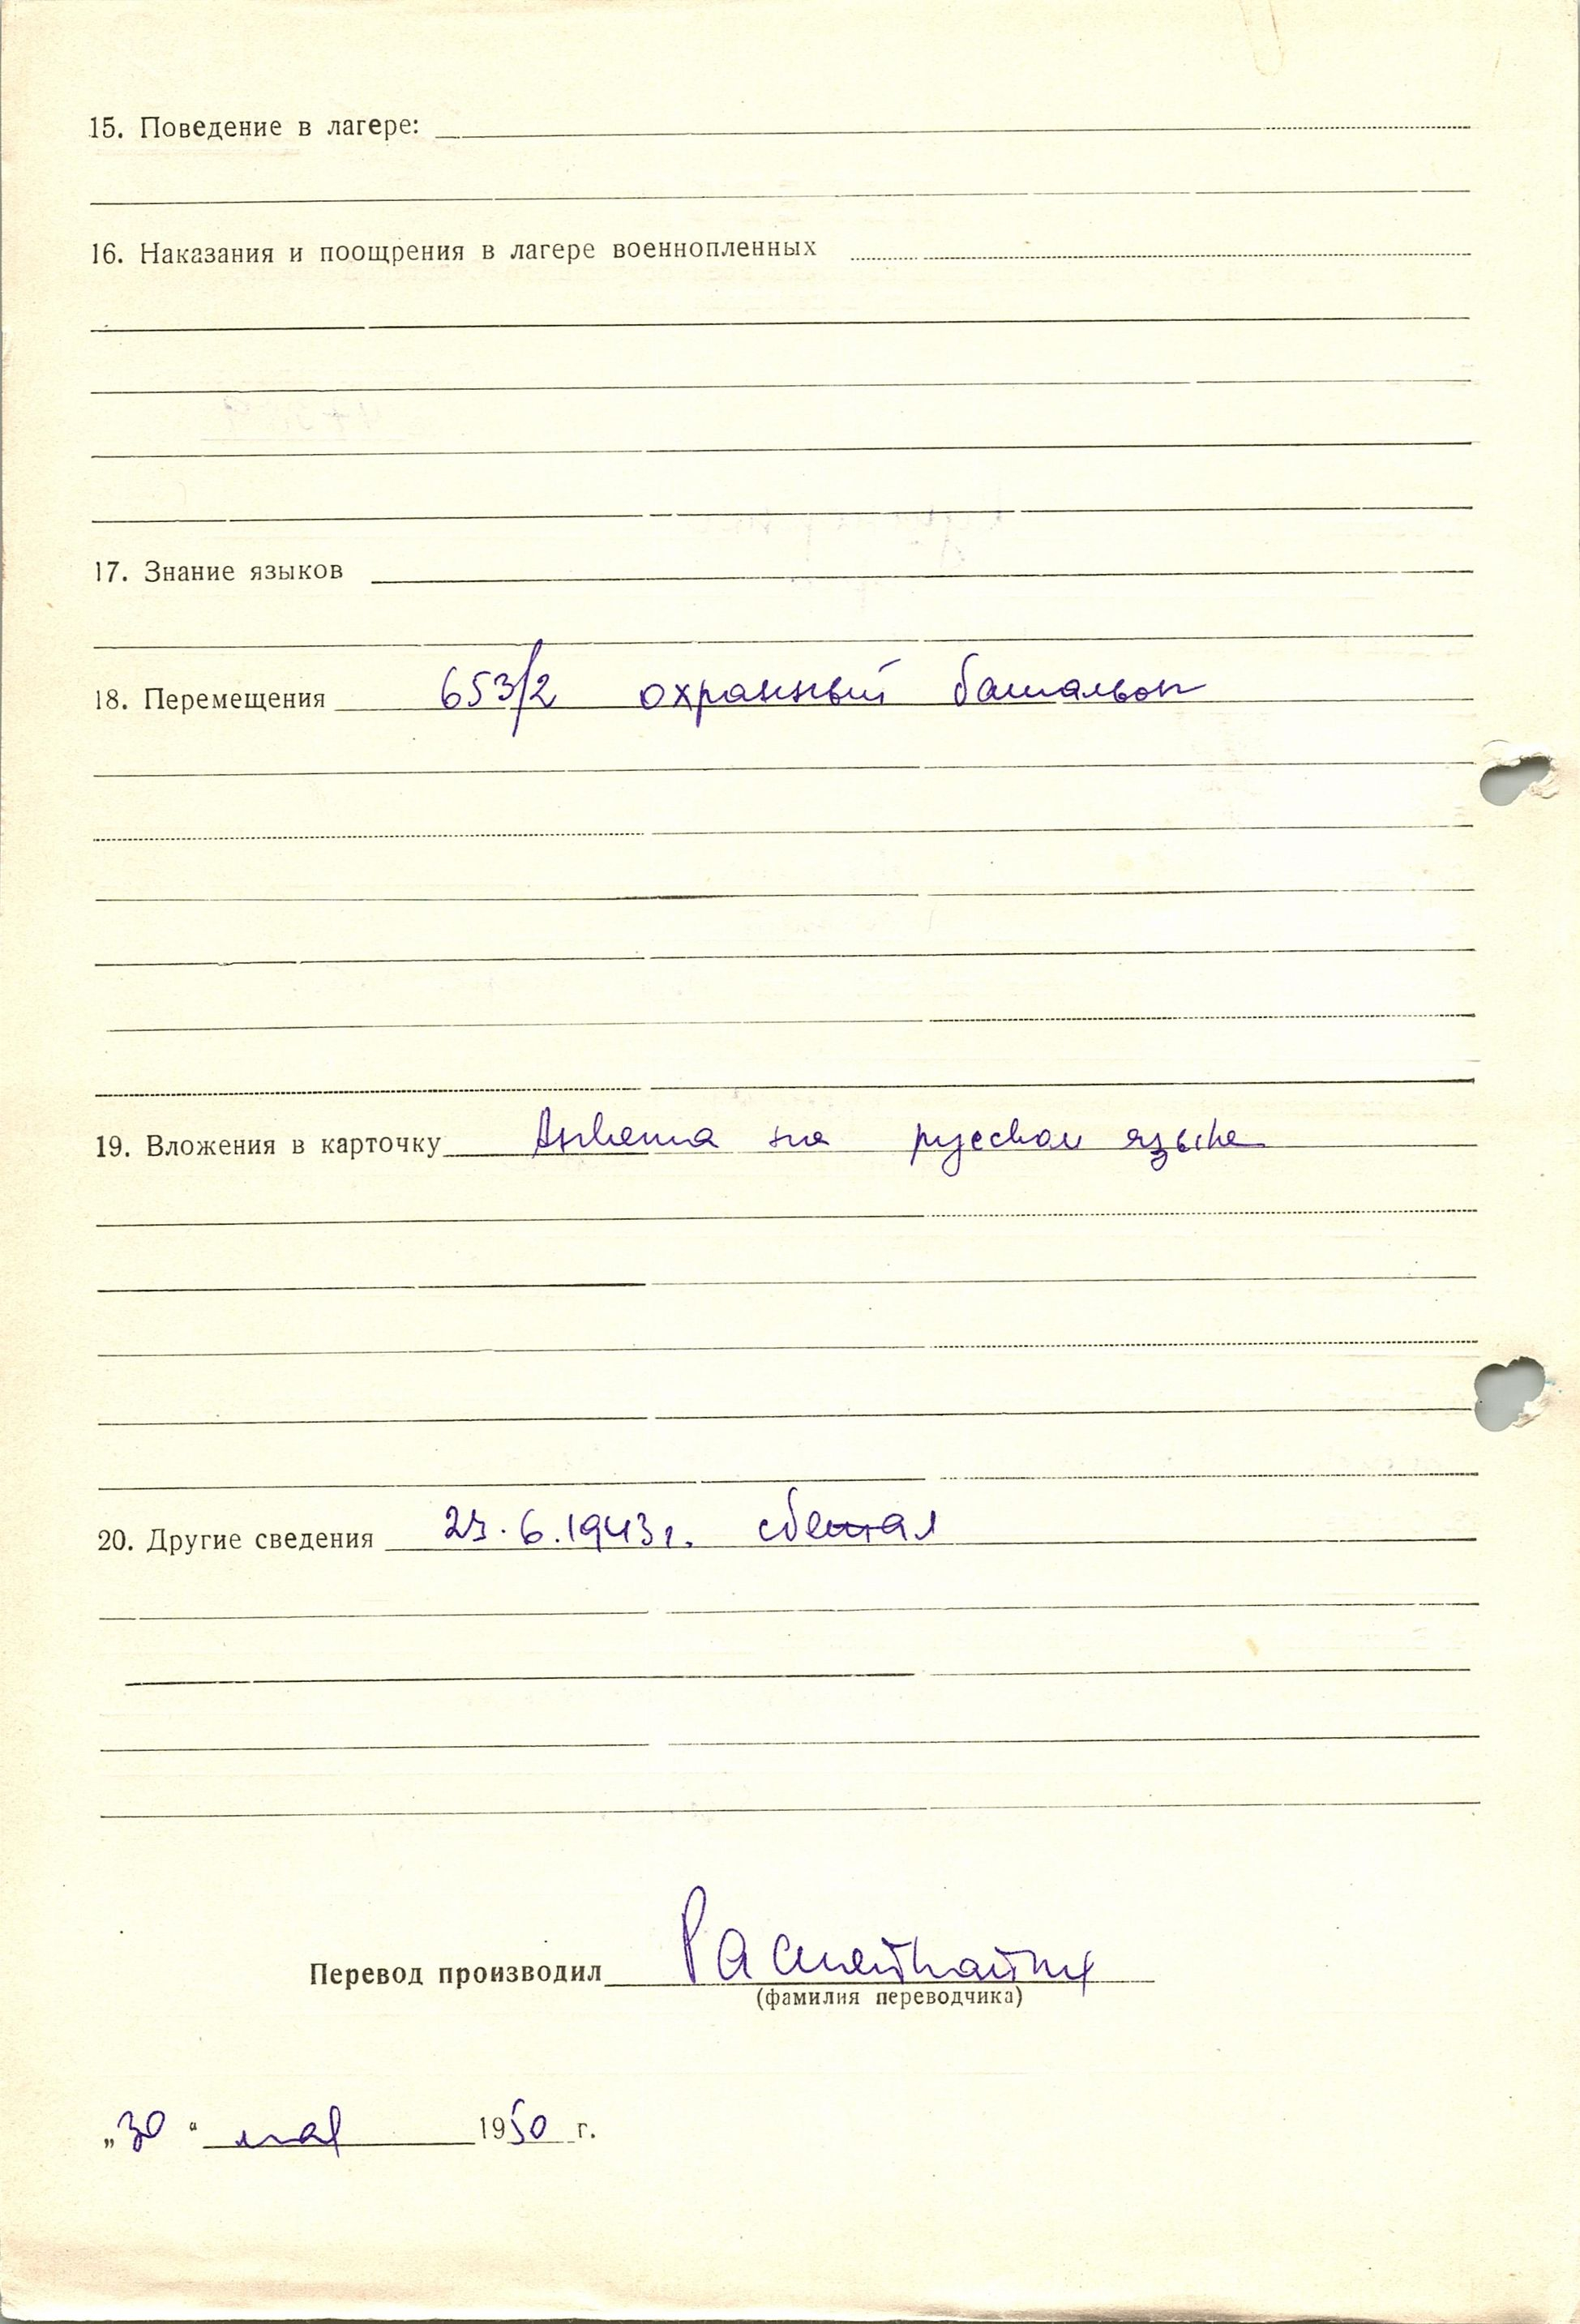 15. Поведение в лагере:
16. Наказания и поощрения в лагере военнопленных
17. Знание языков
18. Перемещения 653/2 охранный батальон
19. Вложения в карточку Анкета на русском языке
20. Другие сведения .6.1943г. сбежал
Перевод производил
(фамилия переводчика)
„30“ мая 1950 г.